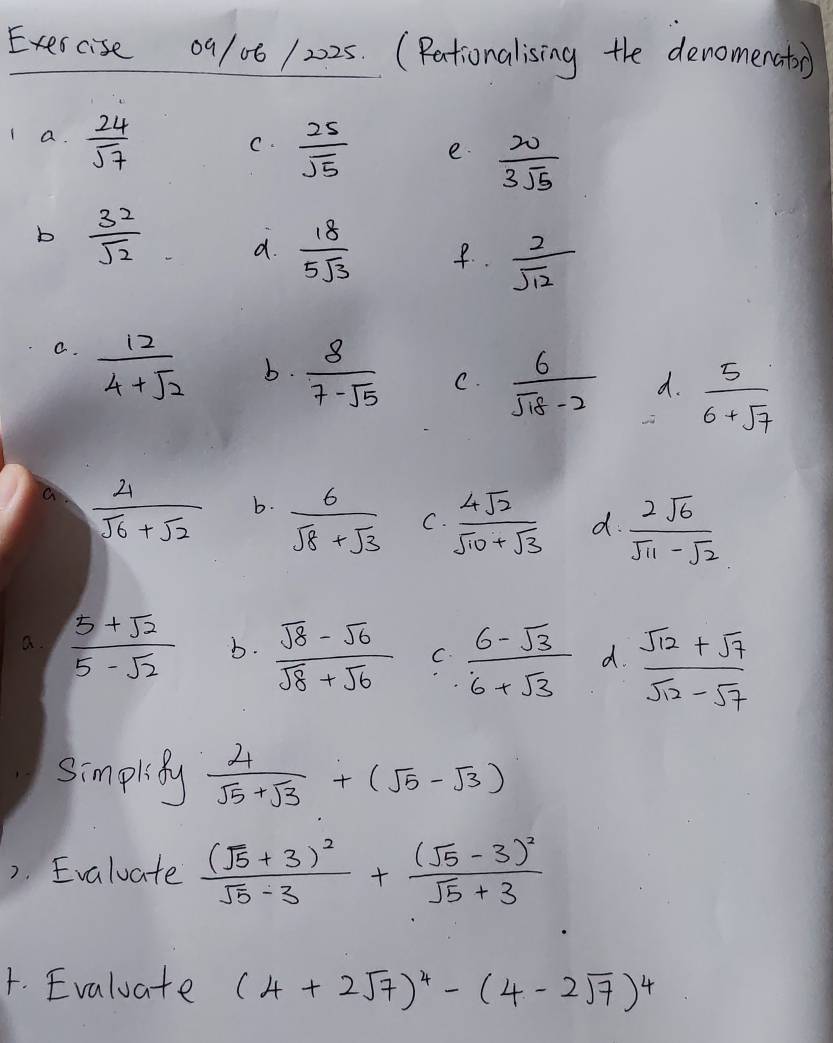 Exercise 09/06/2025. (Rationalising the denomenator)
1 a. 24/√7 c. 25/√5 e. 20/3√5
b 32/√2 d. 18/5√3 f. 2/√12
a. 12/(4+√2) b. 8/(7-√5) c. 6/(√18-2) d. 5/(6+√7)
a. 4/(√6+√2) b. 6/(√8+√3) c. 4√2/(√10+√3) d. 2√6/(√11-√2)
a. (5+√2)/(5-√2) b. (√8-√6)/(√8+√6) c. (6-√3)/(6+√3) d. (√12+√7)/(√12-√7)
Simplify 4/(√5+√3) + (√5-√3)
Evaluate (√5+3)²/(√5-3) + (√5-3)²/(√5+3)
Evaluate (4+2√7)⁴ - (4-2√7)⁴